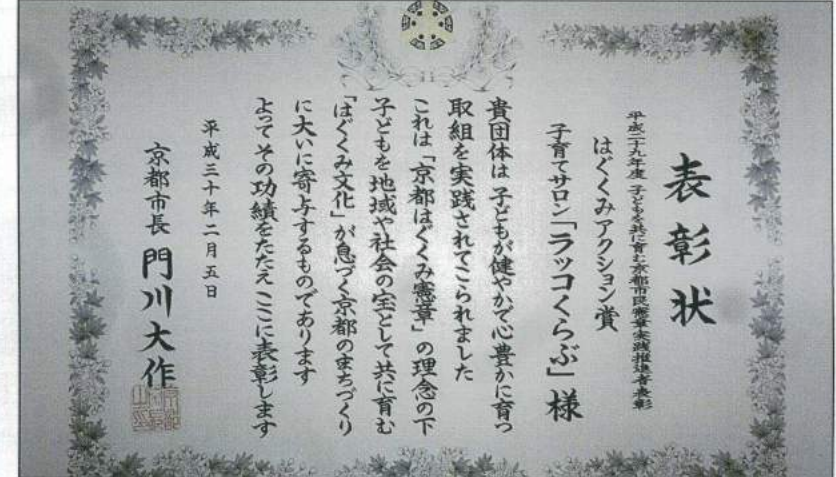 表彰状
平成二十九年度 子どもを共に育む京都市民憲章実践推進者表彰
はぐくみアクション賞
子育てサロン「ラッコくらぶ」様
貴団体は 子どもが健やかで心豊かに育つ
取組を実践されてこられました
これは「京都はぐくみ憲章」の理念の下
子どもを地域や社会の宝として共に育む
「はぐくみ文化」が息づく京都のまちづくり
に大いに寄与するものであります
よってその功績をたたえ ここに表彰します
平成三十年二月五日
京都市長 門川大作